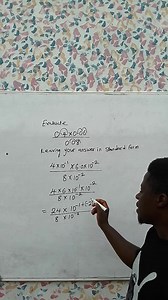 Evaluate
0.4 x 0.60
0.08
Leaving your answer in Standard form
4 x 10⁻¹ x 6.0 x 10⁻²
8 x 10⁻²
4 x 6 x 10⁻¹ x 10⁻²
8 x 10⁻²
= 24 x 10⁻¹⁺⁽⁻²⁾
8 x 10⁻²